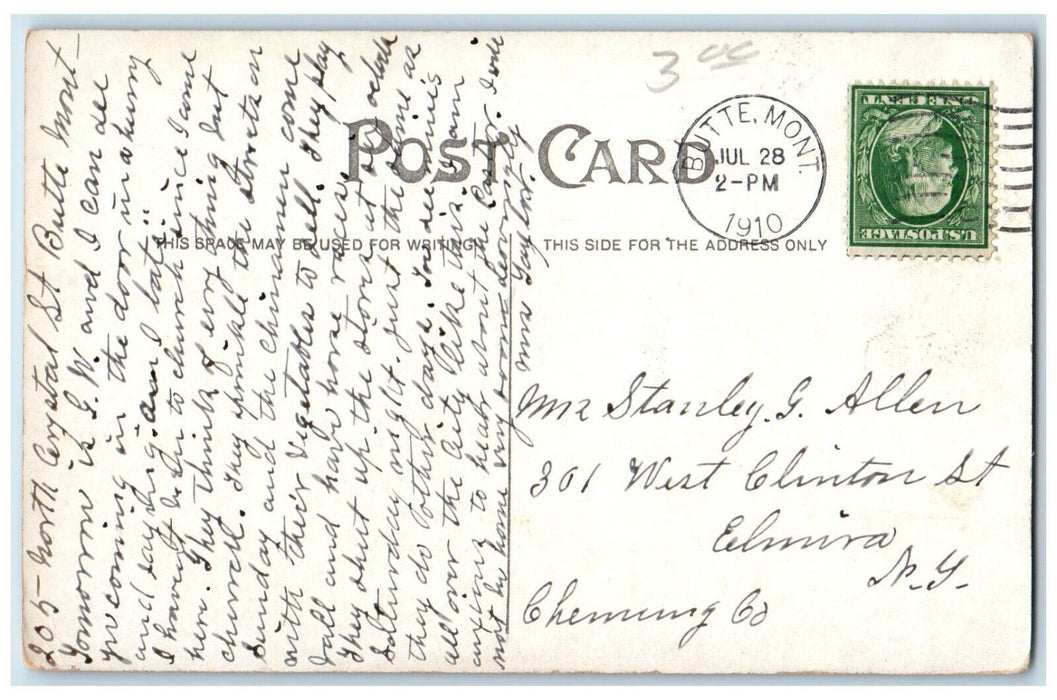 3 00
POST CARD
THIS SPACE MAY BE USED FOR WRITING
THIS SIDE FOR THE ADDRESS ONLY
BUTTE, MONT.
JUL 28
2-PM
1910
U.S. POSTAGE
ONE CENT
205- North Crystal St Butte Mont-
Tomorrow is S. W. and I can see
you coming in the door in a hurry
and saying "am I late"
I havent been to church since I came
here. They think of evry thing but
church. They sprinkle the streets on
Sunday and the chinamen come
with their vegetables to sell. They play
ball and have horse races
They shut up the stores at 6 oclock
Saturday night just the same as
they do other days. You see mines
all over the City like this. am
anxious to hear about the Pastor. I will
not be home very soon
Anna Taylor.
Mr Stanley G. Allen
301 West Clinton St
Elmira
N.Y.
Chemung Co